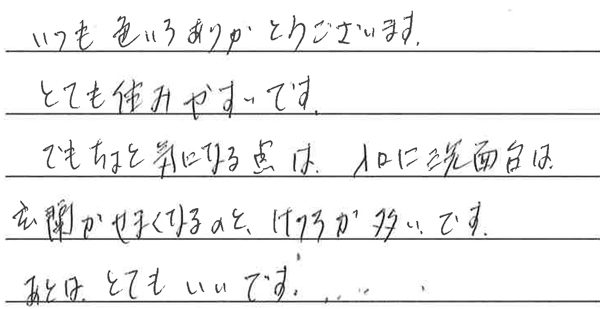 いつも色いろありがとうございます。
とても住みやすいです。
でもちょと気になる点は、入口に洗面台は
玄関がせまくなるのと、けつろが多いです。
あとは、とてもいいです。